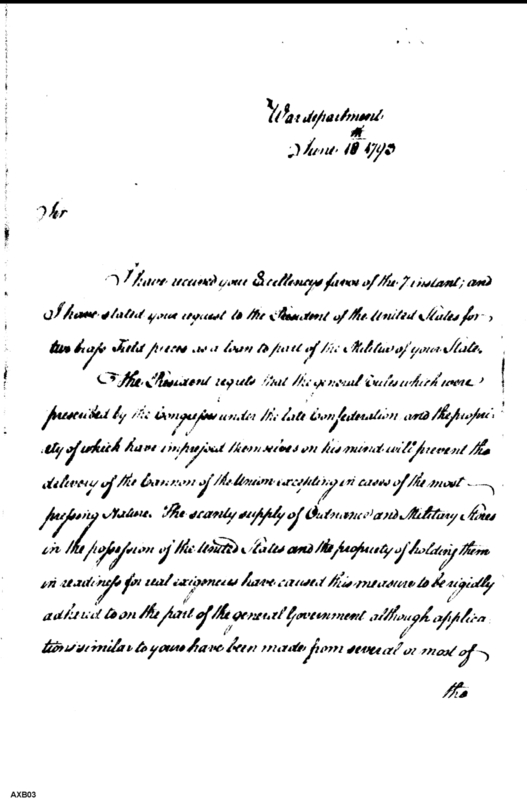 War department
June 18th 1793
Sir
I have received your Excellencys favor of the 7 instant; and
I have stated your request to the President of the United States for
two brass Field pieces as a loan to part of the Militia of your State.
The President regrets that the general rules which were
prescribed by the Congress under the late Confederation and the propri-
ety of which have impressed themselves on his mind will prevent the
delivery of the Cannon of the Union excepting in cases of the most
pressing Nature. The scanty supply of Ordnance and Military Stores
in the possession of the United States and the propriety of holding them
in readiness for real exigencies have caused this measure to be rigidly
adhered to on the part of the general Government although applica-
tions similar to yours have been made from several or most of
the
AXB03